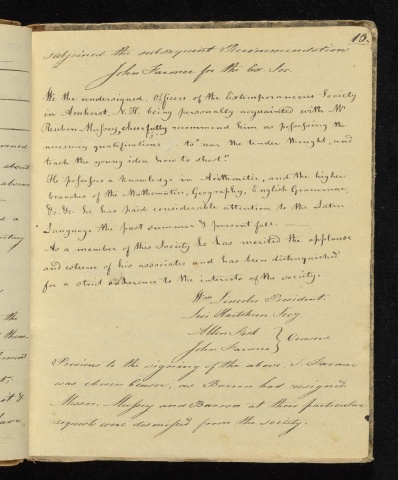 13.
subjoined the subsequent Recommendation
John Farmer for the Ex. Soc.
We the undersigned, Officers of the Extemporaneous Society
in Amherst, N. H. being personally acquainted with Mr
Reuben Mussey, cheerfully recommend him as possessing the
necessary qualifications to "rear the tender thought, and
teach the young idea how to shoot."
He possesses a knowledge in Arithmetic, and the higher
branches of the Mathematics, Geography, English Grammar,
&c. &c. he has paid considerable attention to the Latin
Language the past summer & present fall.
As a member of this Society he has merited the applause
and esteem of his associates and has been distinguished
for a strict adherence to the interests of the society.
Wm Lincoln President
Levi Hartshorn Secy
Allen Fisk
John Farmer } Censors
Previous to the signing of the above, J. Farmer
was chosen Censor, as Barron had resigned.
Messrs. Mussey and Barron at their particular
request were dismissed from the society.